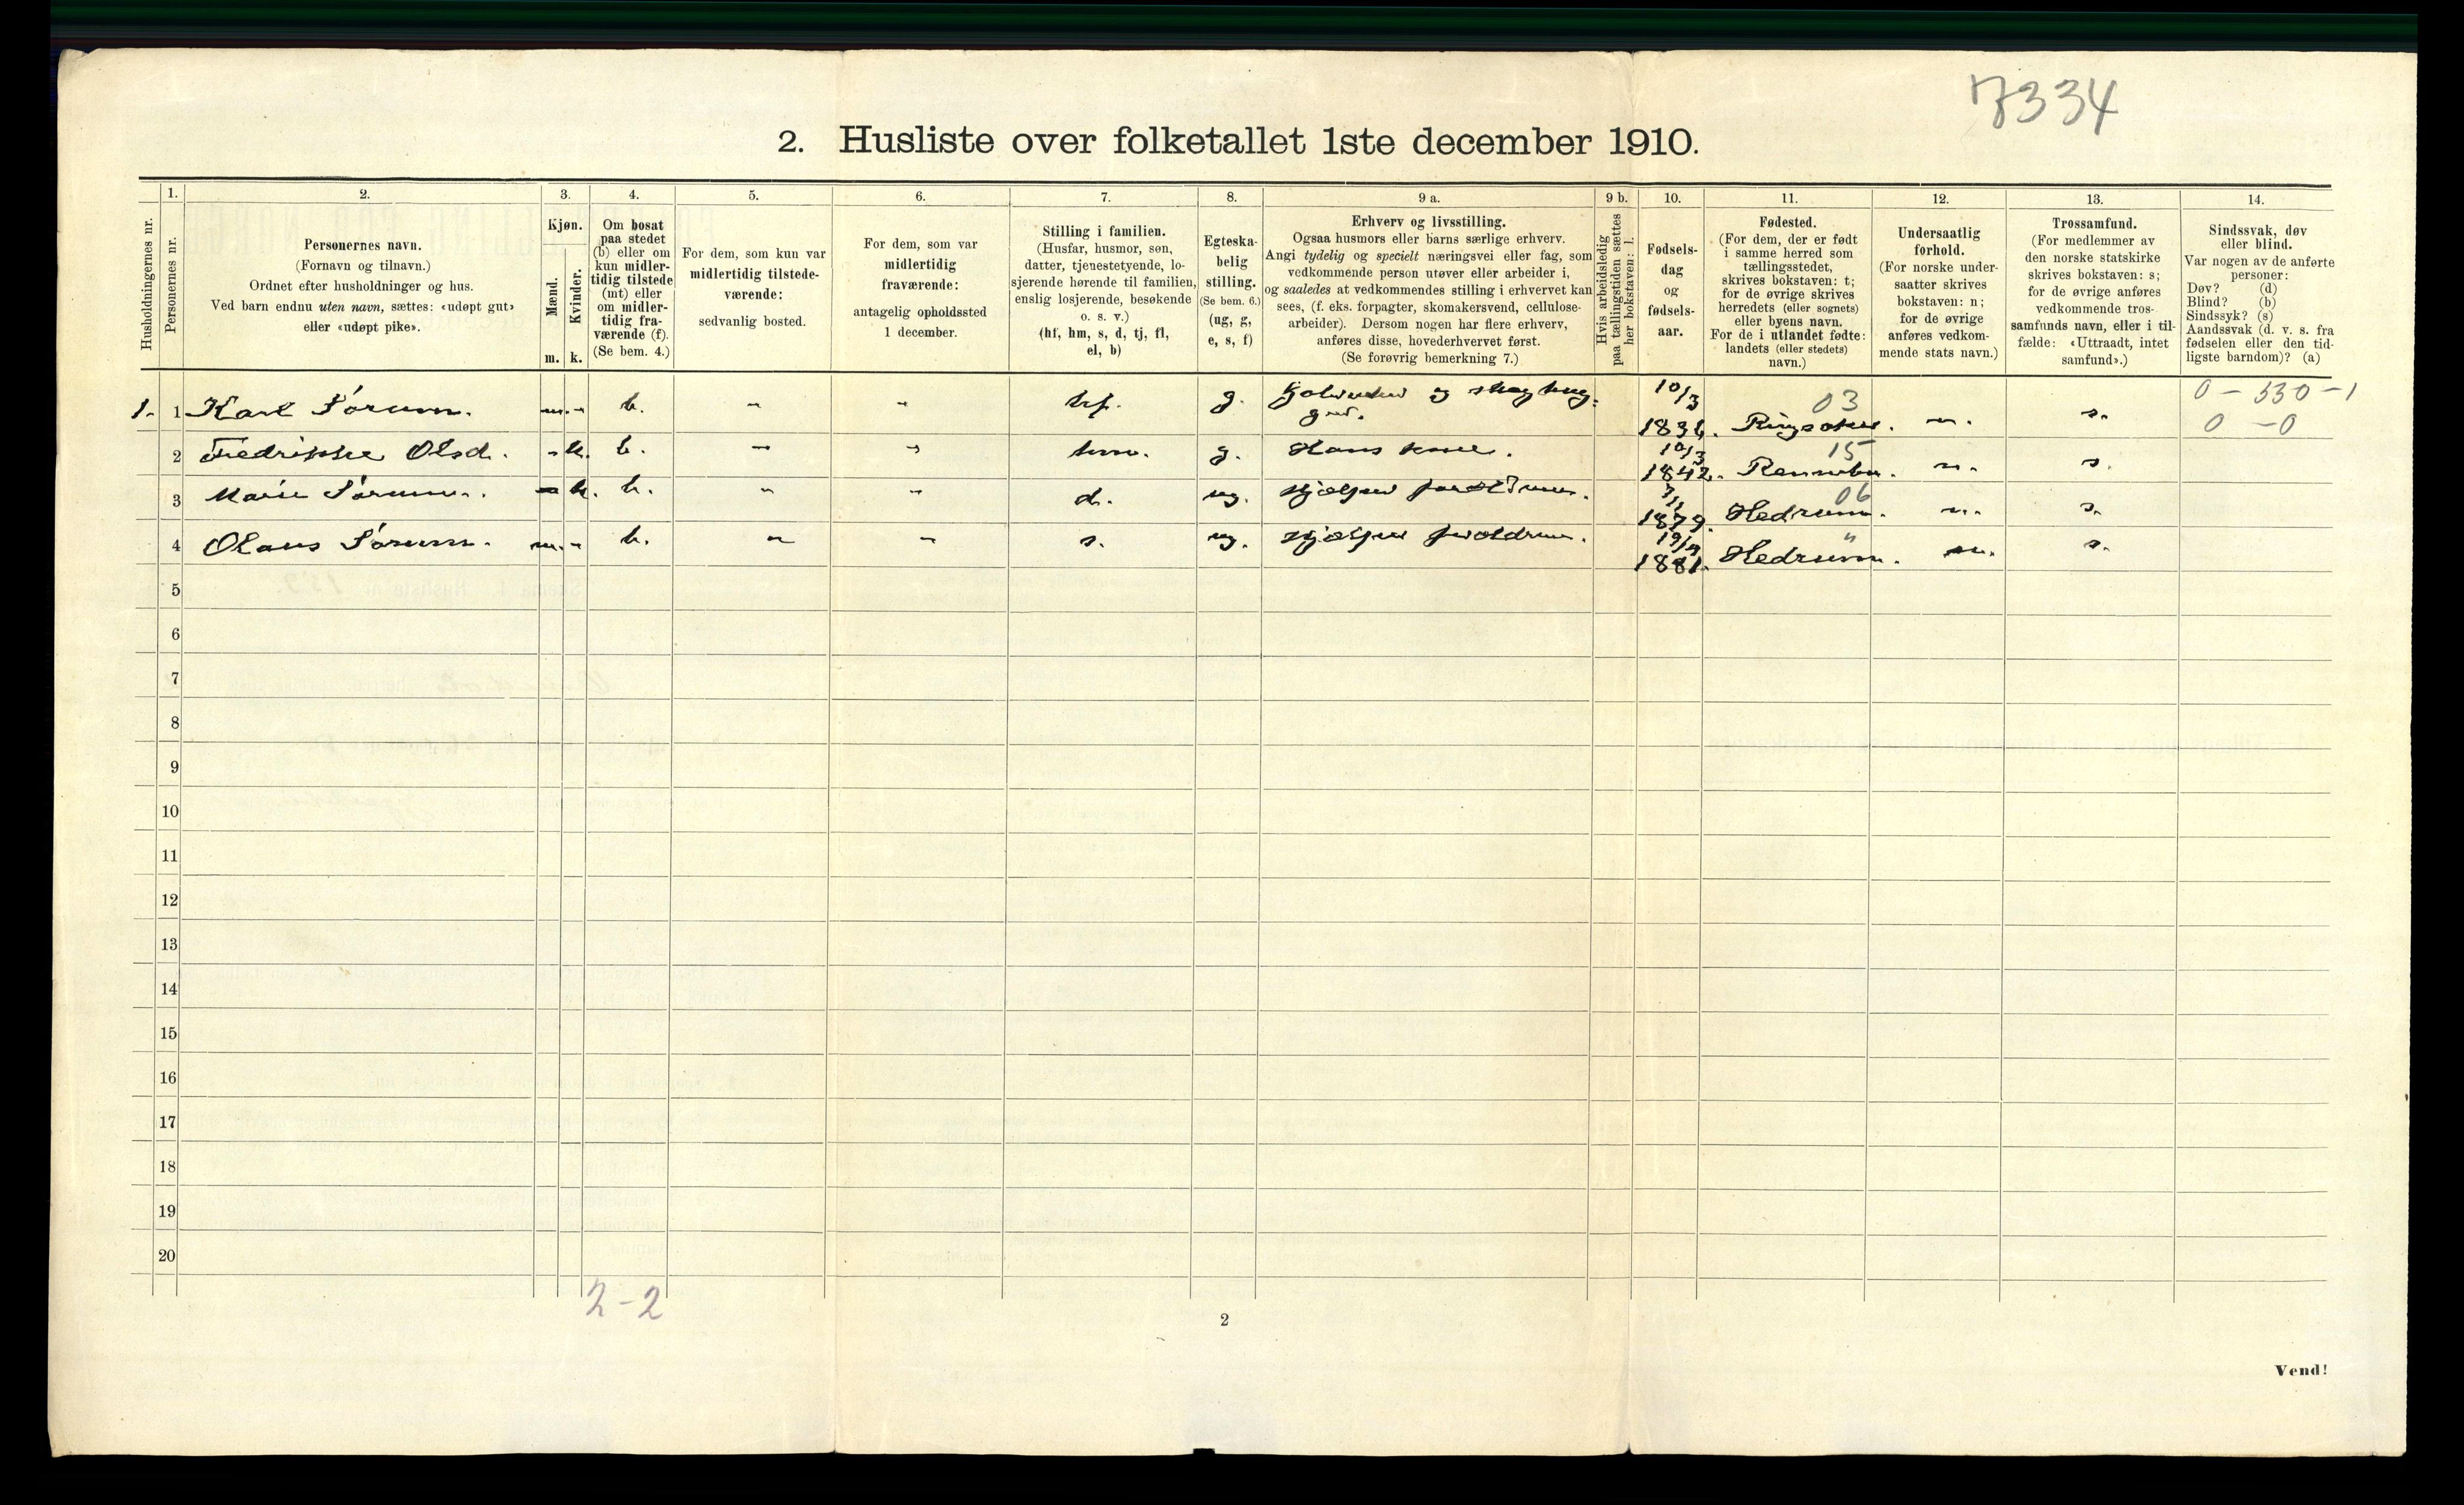 7334
2. Husliste over folketallet 1ste december 1910.
Husholdningernes nr.
1.
Personernes nr.
2.
Personernes navn.
(Fornavn og tilnavn.)
Ordnet efter husholdninger og hus.
Ved barn endnu uten navn, sættes: «udøpt gut»
eller «udøpt pike».
3.
Kjøn.
Mænd.
Kvinder.
m. k.
4.
Om bosat
paa stedet
(b) eller om
kun midler-
tidig tilstede
(mt) eller
om midler-
tidig fra-
værende (f).
(Se bem. 4.)
5.
For dem, som kun var
midlertidig tilstede-
værende:
sedvanlig bosted.
6.
For dem, som var
midlertidig
fraværende:
antagelig opholdssted
1 december.
7.
Stilling i familien.
(Husfar, husmor, søn,
datter, tjenestetyende, lo-
sjerende hørende til familien,
enslig losjerende, besøkende
o. s. v.)
(hf, hm, s, d, tj, fl,
el, b)
8.
Egteska-
belig
stilling.
(Se bem. 6.)
(ug, g,
e, s, f)
9 a.
Erhverv og livsstilling.
Ogsaa husmors eller barns særlige erhverv.
Angi tydelig og specielt næringsvei eller fag, som
vedkommende person utøver eller arbeider i,
og saaledes at vedkommendes stilling i erhvervet kan
sees, (f. eks. forpagter, skomakersvend, cellulose-
arbeider). Dersom nogen har flere erhverv,
anføres disse, hovederhvervet først.
(Se forøvrig bemerkning 7.)
9 b.
Hvis arbeidsledig
paa tællingstiden sættes
her bokstaven: l.
10.
Fødsels-
dag
og
fødsels-
aar.
11.
Fødested.
(For dem, der er født
i samme herred som
tællingsstedet,
skrives bokstaven: t;
for de øvrige skrives
herredets (eller sognets)
eller byens navn.
For de i utlandet fødte:
landets (eller stedets)
navn.)
12.
Undersaatlig
forhold.
(For norske under-
saatter skrives
bokstaven: n;
for de øvrige
anføres vedkom-
mende stats navn.)
13.
Trossamfund.
(For medlemmer av
den norske statskirke
skrives bokstaven: s;
for de øvrige anføres
vedkommende tros-
samfunds navn, eller i til-
fælde: «Uttraadt, intet
samfund».)
14.
Sindssvak, døv
eller blind.
Var nogen av de anførte
personer:
Døv? (d)
Blind? (b)
Sindssyk? (s)
Aandssvak (d. v. s. fra
fødselen eller den tid-
ligste barndom)? (a)
1. 1 Karl Sørum. m. - b. - - hf. g. og 10/3 03 n. s. 0 - 530 - 1
Ringsaker. 0 - 0
2 Fredrikke Olsd. - k. b. - - hm. g. Hans kone. 10/3 1842. 15 Rennebu. n. s.
3 Marie Sørum. - k. b. - - d. ug. Hjælper 1879. 06 Hedrum. n. s.
4 Olaus Sørum. m. - b. - - s. ug. Hjælper 1881. " Hedrum. n. s.
5
6
7
8
9
10
11
12
13
14
15
16
17
18
19
20
2 - 2
2
Vend!